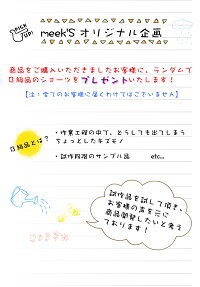 PICK UP!
meek'S オリジナル企画
商品をご購入いただきましたお客様に、ランダムで
B級品のショーツをプレゼントいたします！
【注：全てのお客様に届くわけではございません】
B級品とは？
・作業工程の中で、どうしても出てしまう
ちょっとしたキズモノ
・試作段階のサンプル品　etc...
試作品を試して頂き、
お客様の声を元に
商品開発したいと考え
ております！